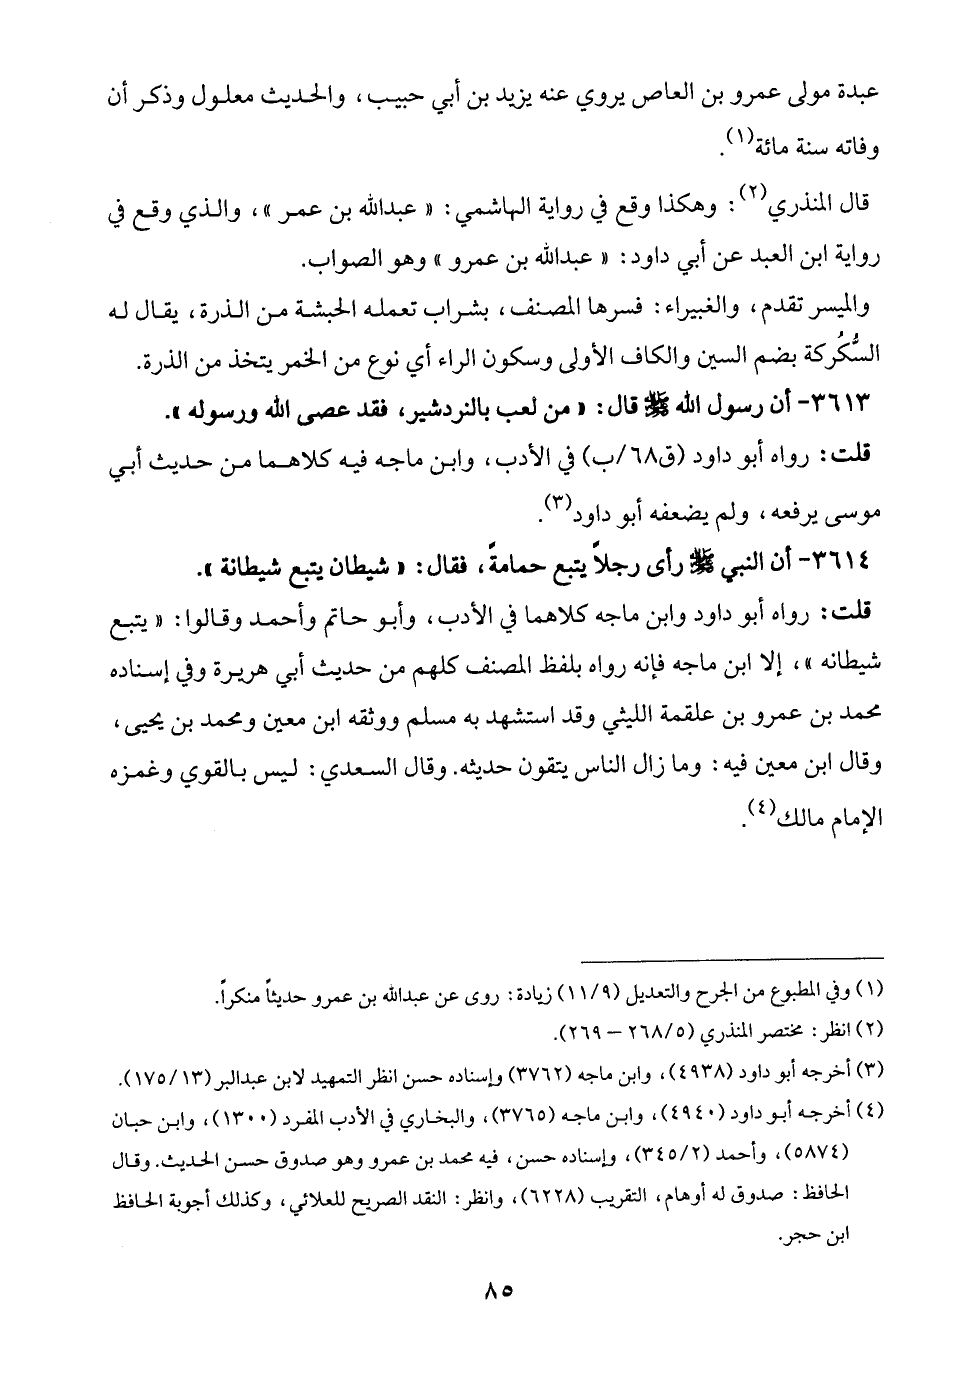 عبدة مولى عمرو بن العاص يروي عنه يزيد بن أبي حبيب، والحديث معلول وذكر أن
وفاته سنة مائة(١).
قال المنذري(٢): وهكذا وقع في رواية الهاشمي: « عبدالله بن عمر »، والذي وقع في
رواية ابن العبد عن أبي داود: « عبدالله بن عمرو » وهو الصواب.
والميسر تقدم، والغبيراء: فسرها المصنف، بشراب تعمله الحبشة من الذرة، يقال له
السُّكُركة بضم السين والكاف الأولى وسكون الراء أي نوع من الخمر يتخذ من الذرة.
٣٦١٣- أن رسول الله ﷺ قال: « من لعب بالنردشير، فقد عصى الله ورسوله ».
قلت: رواه أبو داود (ق٦٨/ب) في الأدب، وابن ماجه فيه كلاهما من حديث أبي
موسى يرفعه، ولم يضعفه أبو داود(٣).
٣٦١٤- أن النبي ﷺ رأى رجلاً يتبع حمامةً، فقال: « شيطان يتبع شيطانة ».
قلت: رواه أبو داود وابن ماجه كلاهما في الأدب، وأبو حاتم وأحمد وقالوا: « يتبع
شيطانه »، إلا ابن ماجه فإنه رواه بلفظ المصنف كلهم من حديث أبي هريرة وفي إسناده
محمد بن عمرو بن علقمة الليثي وقد استشهد به مسلم ووثقه ابن معين ومحمد بن يحيى،
وقال ابن معين فيه: وما زال الناس يتقون حديثه. وقال السعدي: ليس بالقوي وغمزه
الإمام مالك(٤).
(١) وفي المطبوع من الجرح والتعديل (١١/٩) زيادة: روى عن عبدالله بن عمرو حديثاً منكراً.
(٢) انظر: مختصر المنذري (٢٦٨/٥ – ٢٦٩).
(٣) أخرجه أبو داود (٤٩٣٨)، وابن ماجه (٣٧٦٢) وإسناده حسن انظر التمهيد لابن عبدالبر (١٧٥/١٣).
(٤) أخرجه أبو داود (٤٩٤٠)، وابن ماجه (٣٧٦٥)، والبخاري في الأدب المفرد (١٣٠٠)، وابن حبان
(٥٨٧٤)، وأحمد (٣٤٥/٢)، وإسناده حسن، فيه محمد بن عمرو وهو صدوق حسن الحديث. وقال
الحافظ: صدوق له أوهام، التقريب (٦٢٢٨)، وانظر: النقد الصريح للعلائي، وكذلك أجوبة الحافظ
ابن حجر.
٨٥